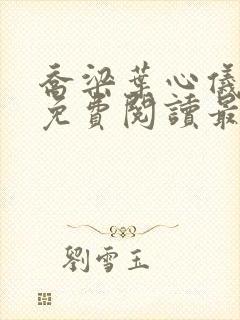 喬梁葉心儀
免費閱讀最
劉雪玉